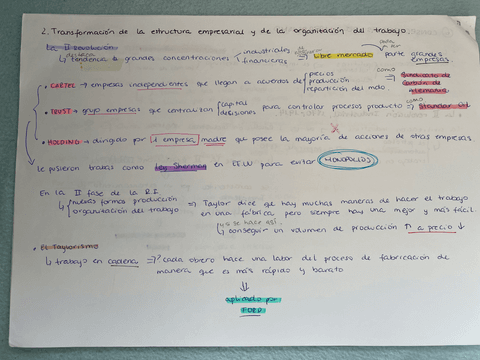 2. Transformación de la estructura empresarial y de la organitación del trabajo.
La II Revolución
↳ tendencia a grandes concentraciones industriales financieras ⇒ libre mercado para parte grandes empresas.
• CARTEL → empresas independientes que llegan a acuerdos de precios producción repartición del mdo. como ⇒
• TRUST → grup empresas que centralizan capital decisiones para controlar procesos producto como ⇒ Standar Oil
• HOLDING → dirigido por 1 empresa madre que posee la mayoría de acciones de otras empresas.
le pusieron trabas como Ley Sherman en EEUU para evitar MONOPOLIOS
En la II fase de la R.I
↳ nuevas formas producción organitación del trabajo ⇒ Taylor dice q hay muchas maneras de hacer el trabajo
en una fábrica pero siempre hay una mejor y más fácil.
y si se hace así
↳ conseguir un volumen de producción ↑ a precio ↓
• El Taylorismo
↳ trabajo en cadena ⇒ cada obrero hace una labor del proceso de fabricación de
manera que es más rápido y barato
⇓
aplicado por
FORD